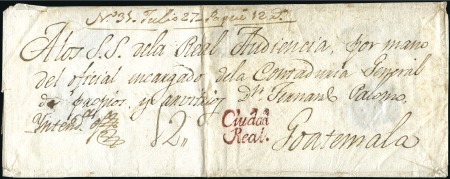 Nº 31. Julio 27
A los S.S. de la Real Audiencia, por mano
del oficial encargado de la Contaduria General
de propios, y arvitrios Dn. Fernando Palomo,
12,,
Ciudad
Real.
Goatemala